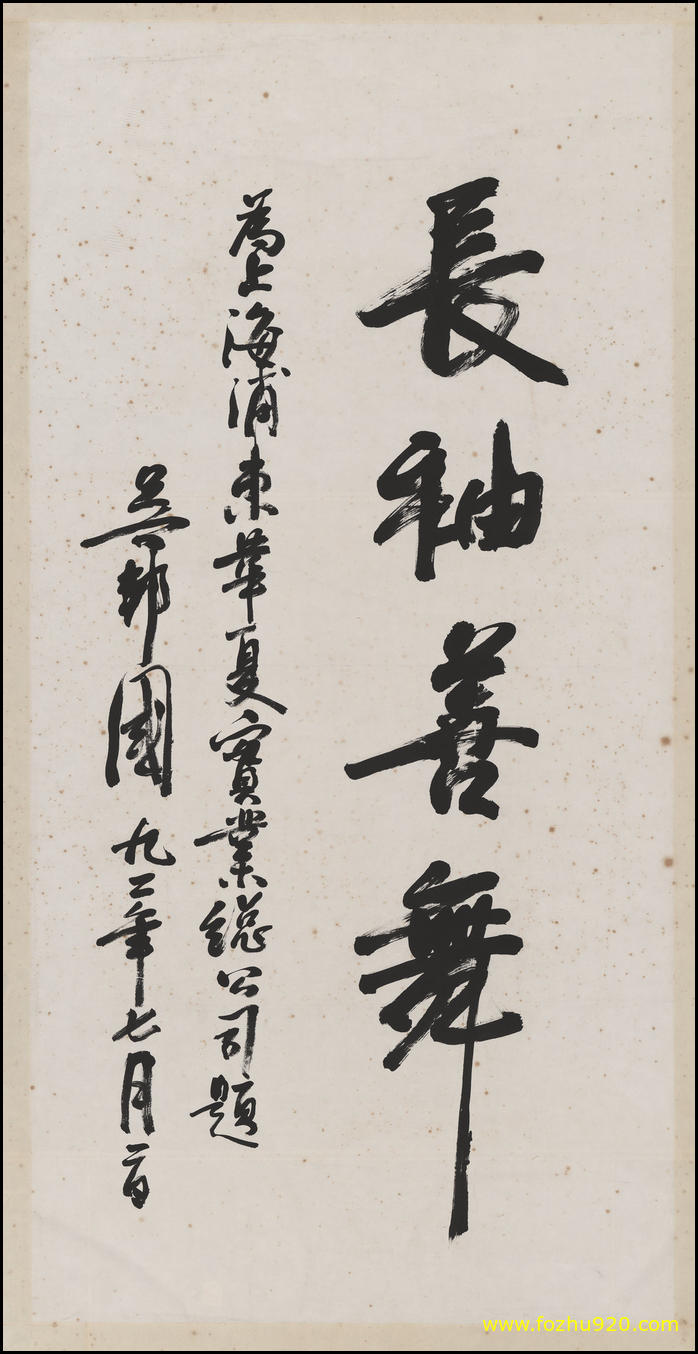 長袖善舞
為上海浦東華夏實業總公司題
吴邦國 九二年七月一日
www.fozhu920.com